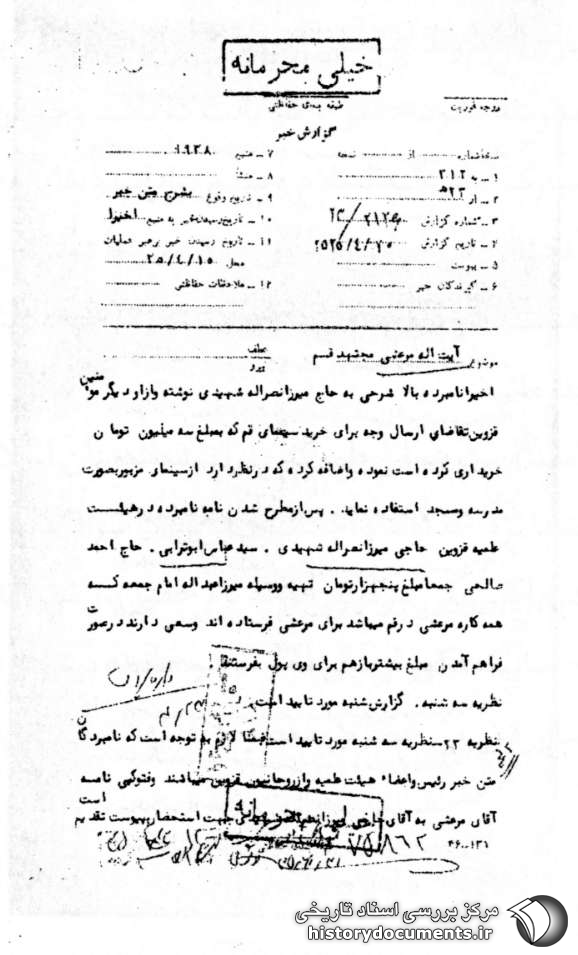 خیلی محرمانه
طبقه بندی حفاظتی
درجه فوریت
گزارش خبر
از نسخه
۱ - به ۳۱۲
۲ - از ۲۳ه
۳ - شماره گزارش
۴ - تاریخ گزارش ۲۵۳۵/۴/۲۰
۵ - پیوست
۶ - گیرندگان خبر
۷ - منبع ۱۹۳۸
۸ - منشاء
۹ - تاریخ وقوع بشرح متن خبر
۱۰ - تاریخ رسیدن خبر به منبع اخیرا
۱۱ - تاریخ رسیدن خبر برهبر عملیات
محل ۲۵/۴/۱۵
۱۲ - ملاحظات حفاظتی
موضوع آیت اله مرعشی مجتهد قم
عطف
پیرو
اخیرا نامبرده بالا شرحی به حاج میرزانصراله شهیدی نوشته وازاو دیگر مومنین
قزوین تقاضای ارسال وجه برای خرید سینمای قم که بمبلغ سه میلیون تومان
خریداری کرده است نموده واضافه کرده که درنظردارد ازسینمای مزبوربصورت
مدرسه ومسجد استفاده نماید . پس ازمطرح شدن نامه نامبرده درهیئت
علمیه قزوین حاجی میرزانصراله شهیدی . سیدعباس ابوترابی . حاج احمد
صالحی جمعا مبلغ پنجهزارتومان تهیه ووسیله میرزاعبداله امام جمعه که
همه کاره مرعشی درقم میباشد برای مرعشی فرستاده اند وسعی دارند درصورت
فراهم آمدن مبلغ بیشتربازهم برای وی پول بفرستند
نظریه سه شنبه . گزارش شنبه مورد تایید است
نظریه ۲۳ - نظریه سه شنبه مورد تایید است ضمنا لازم به توجه است که نامبردگان
متن خبر رئیس واعضاء هیئت علمیه وازروحانیون قزوین میباشند وفتوکپی نامه
آقای مرعشی به آقای حاجی میرزانصراله جهت استحضار بپیوست تقدیم است
۴۶۰۰۱۳۱
خیلی محرمانه
۷۵۸۶۲
مرکز بررسی اسناد تاریخی
historydocuments.ir